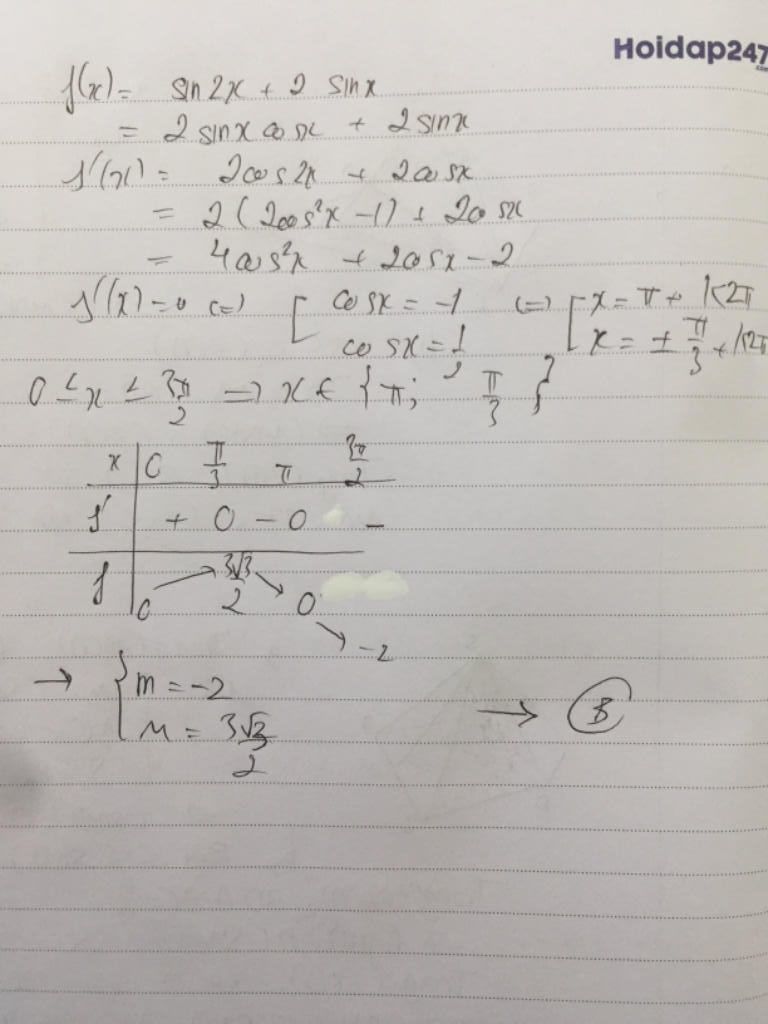 Hoidap247
.com
f(x) = sin2x + 2 sinx
= 2 sinx cosx + 2 sinx
f'(x) = 2cos2x + 2cosx
= 2(2cos²x - 1) + 2cosx
= 4cos²x + 2cosx - 2
f'(x) = 0 (=) [ cosx = -1 (=) [ x = π + k2π
cosx = 1/2 x = ± π/3 + k2π
0 ≤ x ≤ 3π/2 => x ∈ { π; π/3 }
x 0 π/3 π 3π/2
f' + 0 - 0 -
f 0 3√3/2 0 -2
→ { m = -2
M = 3√3/2 → B